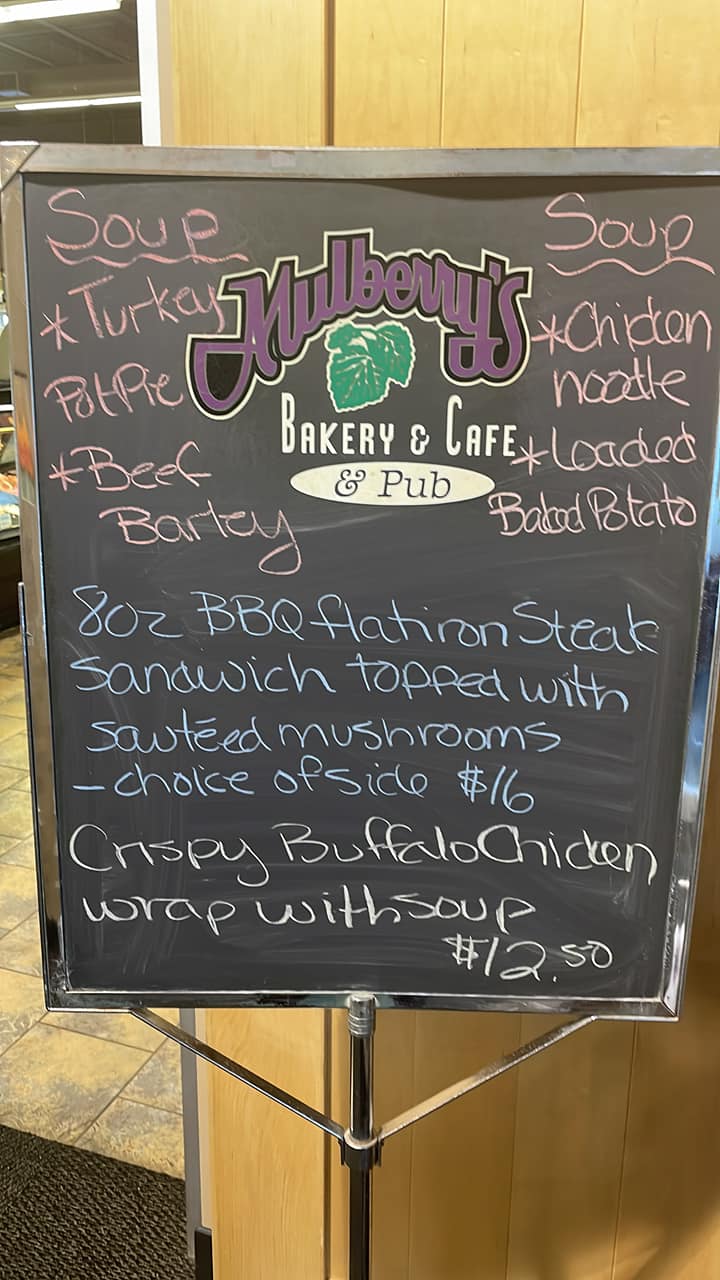 Soup
*Turkey
PotPie
*Beef
Barley
Mulberry's
BAKERY & CAFE
& Pub
Soup
*Chicken
noodle
*Loaded
Baked Potato
8oz BBQ flatiron Steak
Sandwich topped with
sautéed mushrooms
- choice of side $16
Crispy Buffalo Chicken
wrap with soup
$12.50